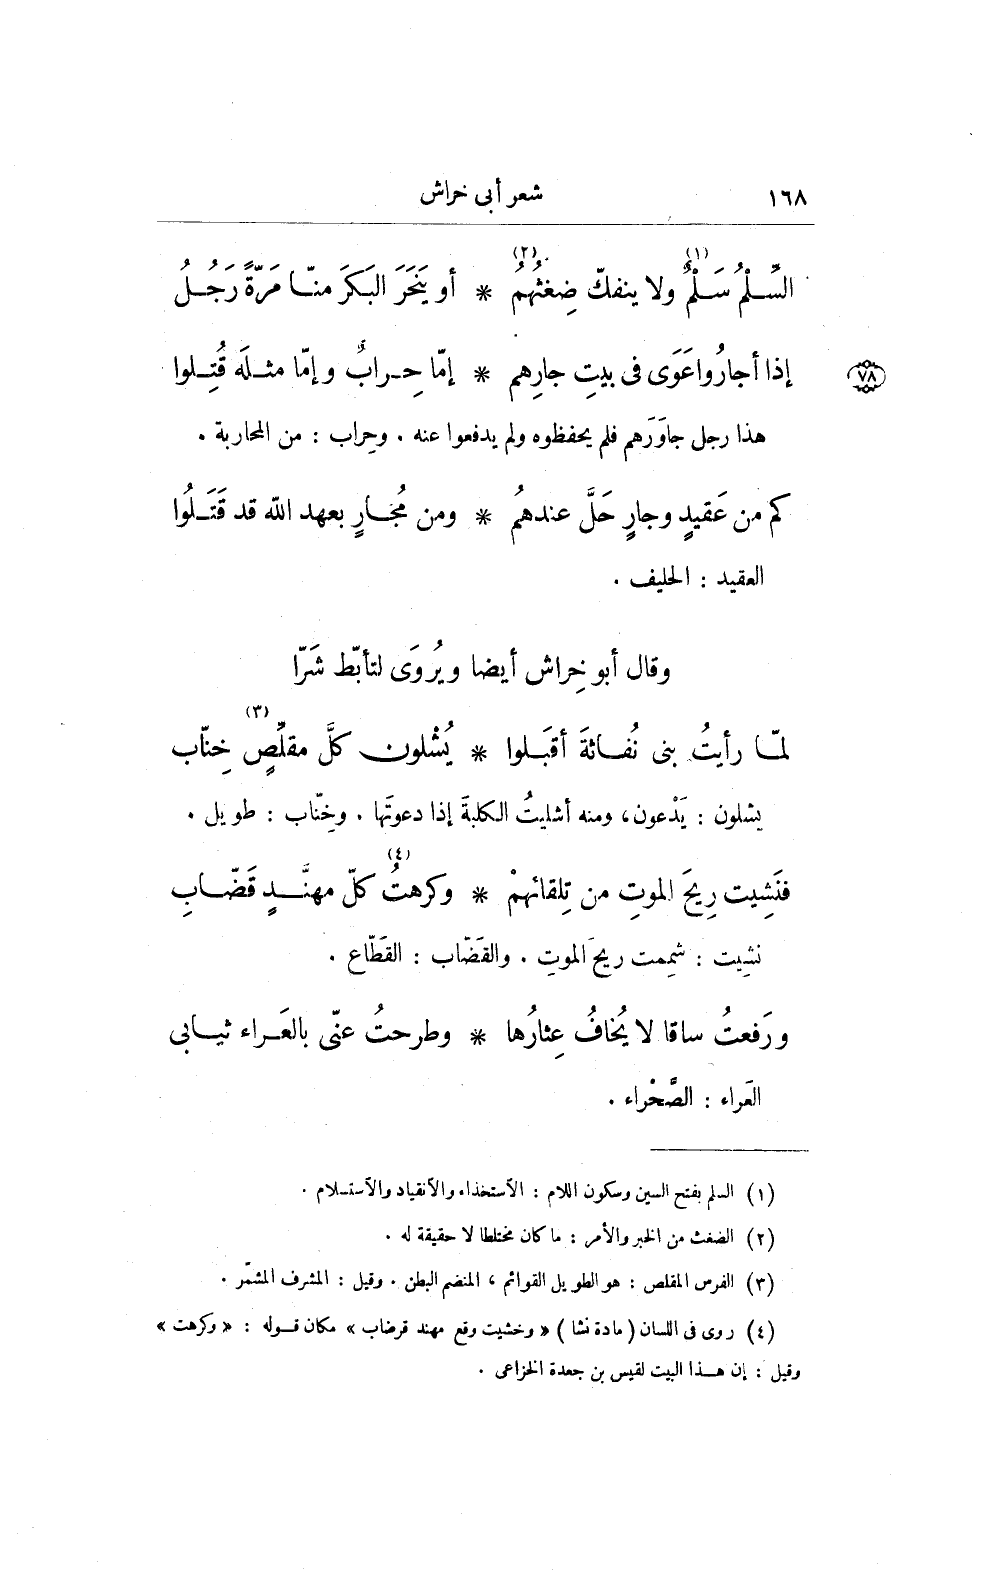 ١٦٨ شعر أبى خراش
السِّلْمُ سَلْمٌ (١) ولا ينفكّ ضِغثُهُمُ (٢) * أو يَنحَرَ البَكرَ منّا مَرّةً رَجُلُ
إذا أجارُوا عَوَى فى بيتِ جارِهم * إمّا حِرابٌ وإمّا مثلَه قُتِلوا
٧٨
هذا رجل جاوَرَهم فلم يحفظوه ولم يدفعوا عنه . وحِراب : من المحاربة .
كم من عَقيدٍ وجارٍ حَلَّ عندهُمُ * ومن مُجارٍ بعهد الله قد قَتَلُوا
العقيد : الحليف .
وقال أبو خِراش أيضا ويُروَى لتأبّط شَرّا
لمّا رأيتُ بنى نُفاثةَ أقبَلوا * يُشْلون كلَّ مقلِّصٍ (٣) خِنّاب
يشلون : يَدْعون، ومنه أشليتُ الكلبةَ إذا دعوتَها . وخِنّاب : طويل .
فنَشِيت رِيحَ الموتِ من تِلقائهمْ * وكرهتُ (٤) كلّ مهنَّدٍ قَضّابِ
نشِيت : شمِمت ريحَ الموتِ . والقَضّاب : القَطّاع .
ورَفعتُ ساقا لا يُخافُ عِثارُها * وطرحتُ عنّى بالعَراء ثيابى
العَراء : الصَّحْراء .
(١) السلم بفتح السين وسكون اللام : الاستخذاء والانقياد والاستسلام .
(٢) الضغث من الخبر والأمر : ما كان مختلطا لا حقيقة له .
(٣) الفرس المقلص : هو الطويل القوائم ، المنضم البطن . وقيل : المشرف المشمّر .
(٤) روى فى اللسان (مادة نشا) « وخشيت وقع مهند قرضاب » مكان قوله : « وكرهت »
وقيل : إن هذا البيت لقيس بن جعدة الخزاعى .